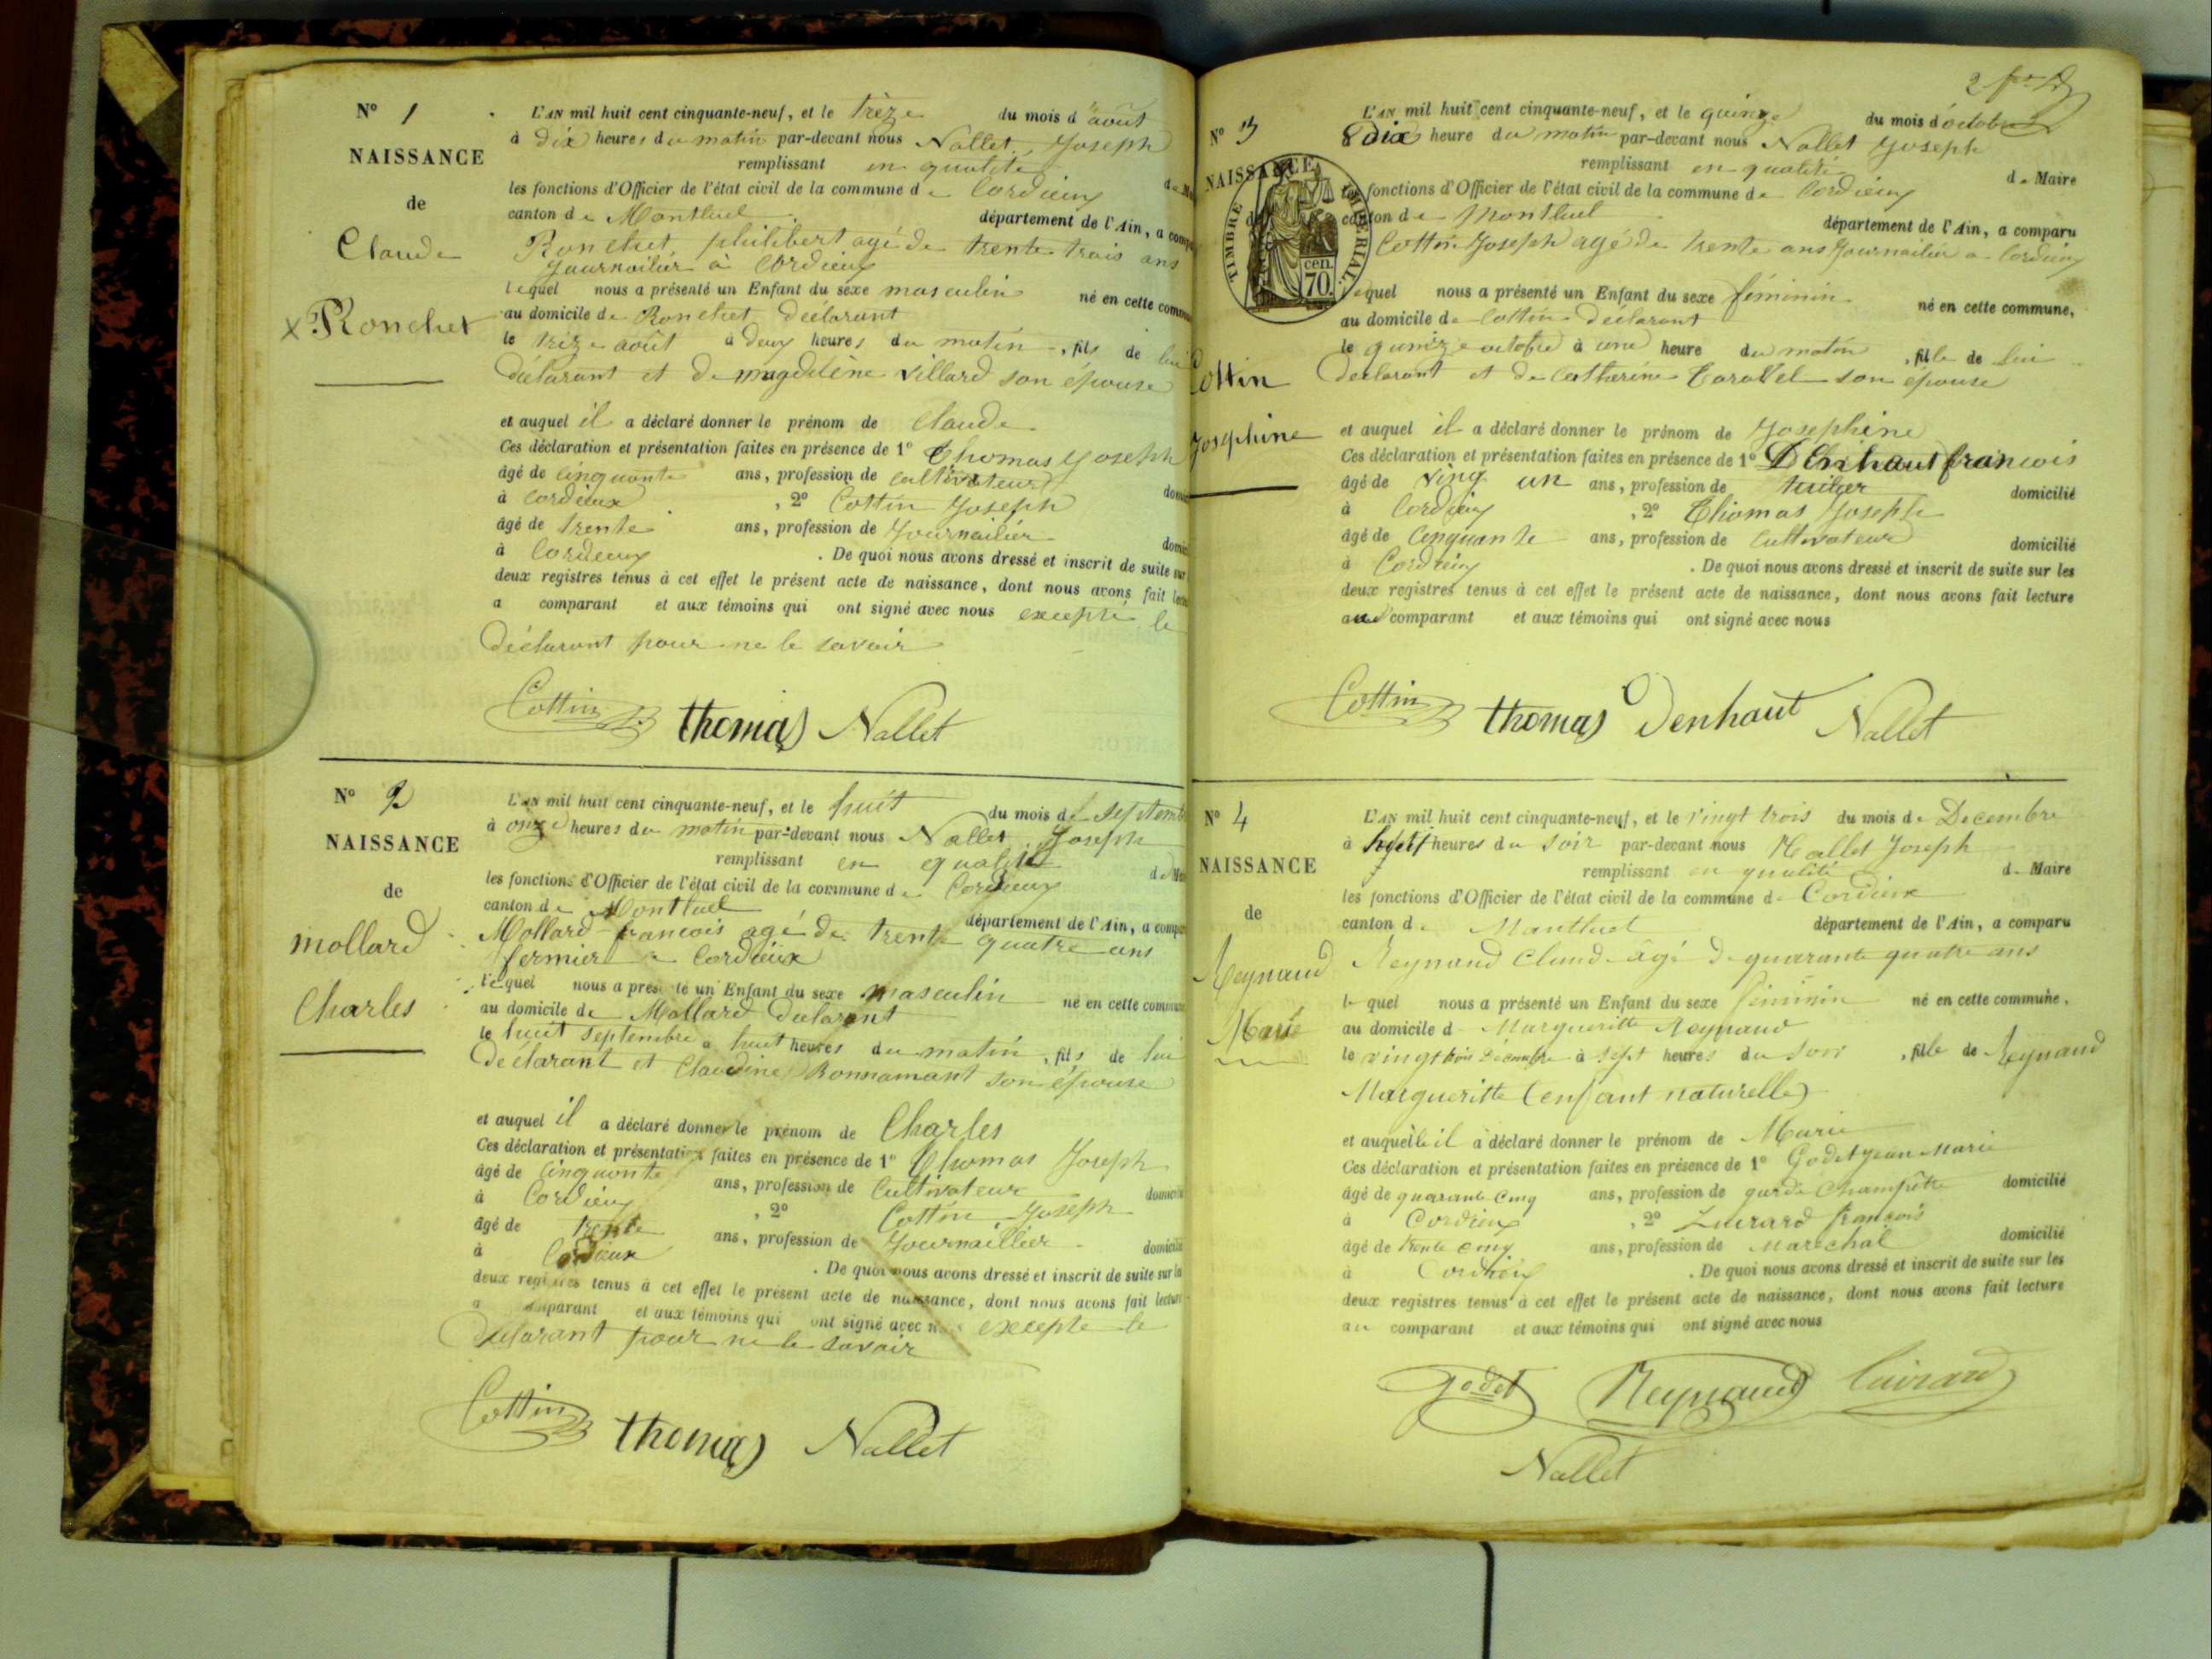 N° 1
NAISSANCE
de
Claude
x Ronchet
L'AN mil huit cent cinquante-neuf, et le treze du mois d'août
à dix heures du matin par-devant nous Nallet Joseph
remplissant en qualité de
les fonctions d'Officier de l'état civil de la commune de Cordieux
canton de Montluel département de l'Ain, a
Ronchet philibert agé de trente trois ans
journailier à Cordieux
lequel nous a présenté un Enfant du sexe masculin né en cette
au domicile de Ronchet déclarant
le treze août à deux heures du matin, fils de lui
déclarant et de magdelène Villard son épouse
et auquel il a déclaré donner le prénom de Claude
Ces déclaration et présentation faites en présence de 1° Thomas Joseph
âgé de cinquante ans, profession de cultivateur
à Cordieux, 2° Cottin Joseph
âgé de trente ans, profession de Journailier
à Cordieux. De quoi nous avons dressé et inscrit de suite sur
deux registres tenus à cet effet le présent acte de naissance, dont nous avons fait
a comparant et aux témoins qui ont signé avec nous excepté le
déclarant pour ne le savoir
Cottin thomas Nallet
N° 2
NAISSANCE
de
mollard
Charles
L'AN mil huit cent cinquante-neuf, et le huit du mois de
à onze heures du matin par-devant nous Nallet Joseph
remplissant en qualité de
les fonctions d'Officier de l'état civil de la commune de Cordieux
canton de Montluel département de l'Ain, a
Mollard francois agé de trente quatre ans
fermier a Cordieux
lequel nous a présenté un Enfant du sexe masculin né en cette
au domicile de Mollard déclarant
le huit septembre a huit heures du matin, fils de lui
déclarant et Claudine Bonnamant son épouse
et auquel il a déclaré donner le prénom de Charles
Ces déclaration et présentation faites en présence de 1° Thomas Joseph
âgé de cinquante ans, profession de Cultivateur
à Cordieux, 2° Cottin Joseph
âgé de trente ans, profession de Journaillier
à Cordieux. De quoi nous avons dressé et inscrit de suite sur
deux registres tenus à cet effet le présent acte de naissance, dont nous avons fait lecture
a comparant et aux témoins qui ont signé avec nous excepte le
déclarant pour ne le savoir
Cottin thomas Nallet
N° 3
NAISSANCE
TIMBRE IMPÉRIAL
cen.
70.
Cottin
Josephine
L'AN mil huit cent cinquante-neuf, et le quinze du mois d'octobre
dix heure du matin par-devant nous Nallet Joseph
remplissant en qualité de Maire
fonctions d'Officier de l'état civil de la commune de Cordieux
canton de Montluel département de l'Ain, a comparu
Cottin Joseph agé de trente ans Journailier a Cordieux
lequel nous a présenté un Enfant du sexe féminin né en cette commune,
au domicile de Cottin déclarant
le quinze octobre à une heure du matin, fille de lui
déclarant et de Catherine Caravel son épouse
et auquel il a déclaré donner le prénom de Josephine
Ces déclaration et présentation faites en présence de 1° Denhaut francois
âgé de ving un ans, profession de domicilié
à Cordieux, 2° Thomas Joseph
âgé de Cinquante ans, profession de Cultivateur domicilié
à Cordieux. De quoi nous avons dressé et inscrit de suite sur les
deux registres tenus à cet effet le présent acte de naissance, dont nous avons fait lecture
comparant et aux témoins qui ont signé avec nous
Cottin thomas Denhaut Nallet
N° 4
NAISSANCE
de
Reynaud
Marie
L'AN mil huit cent cinquante-neuf, et le vingt trois du mois de Decembre
à heures du soir par-devant nous Nallet Joseph
remplissant en qualité de Maire
les fonctions d'Officier de l'état civil de la commune de Cordieux
canton de Montluel département de l'Ain, a comparu
Reynaud Claude âgé de quarante quatre ans
lequel nous a présenté un Enfant du sexe féminin né en cette commune,
au domicile de Margueritte Reynaud
le vingt trois décembre à sept heures du soir, fille de Reynaud
Margueritte (enfant naturelle)
et auquelle il a déclaré donner le prénom de Marie
Ces déclaration et présentation faites en présence de 1° Godet Jean Marie
âgé de quarante cinq ans, profession de garde Champêtre domicilié
à Cordieux, 2° Luirard françois
âgé de trente cinq ans, profession de Marechal domicilié
à Cordieux. De quoi nous avons dressé et inscrit de suite sur les
deux registres tenus à cet effet le présent acte de naissance, dont nous avons fait lecture
au comparant et aux témoins qui ont signé avec nous
Godet Reynaud Luirard
Nallet